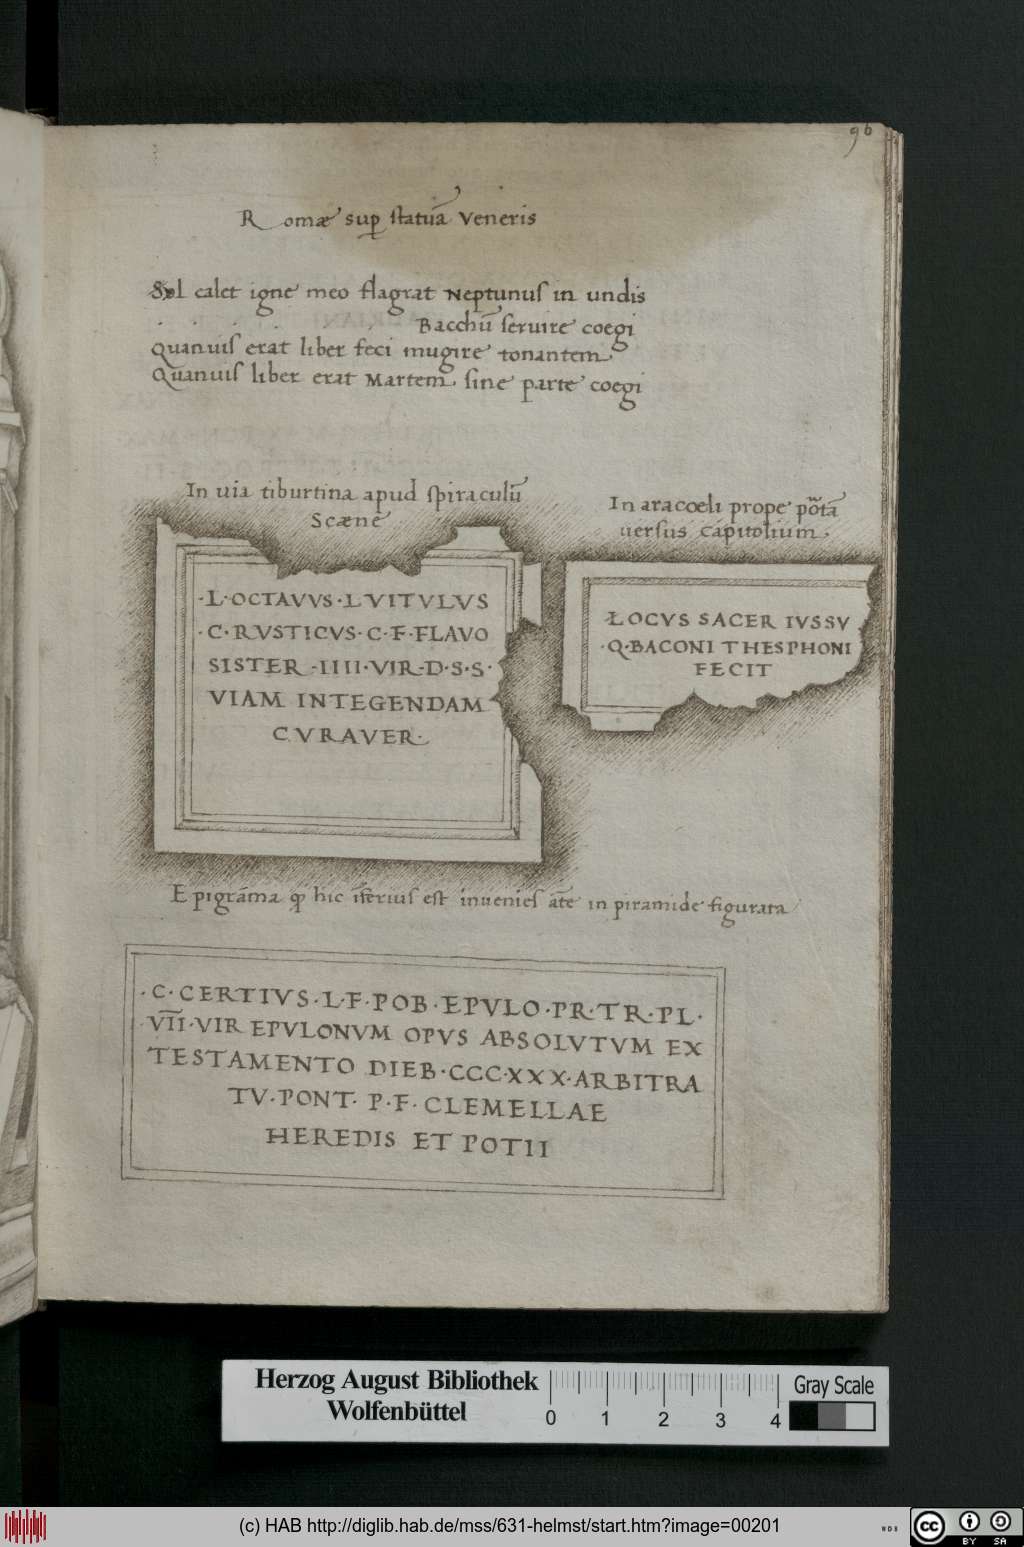 96
Romæ sup statuā Veneris
Sol calet igne meo flagrat Neptunus in undis
Bacchū seruire coegi
Quanuis erat liber feci mugire tonantem
Quanuis liber erat Martem sine parte coegi
In uia tiburtina apud spiraculū
Scæne
·L·OCTAVVS·L VITVLVS
·C·RVSTICVS·C·F·FLAVO
SISTER·IIII·VIR·D·S·S·
VIAM INTEGENDAM
CVRAVER·
In aracoeli prope
uersus capitolium.
LOCVS SACER IVSSV
·Q·BACONI THESPHONI
FECIT
Epigrāma hic īferius est inuenies āte in piramide figurata
·C·CERTIVS·L·F·POB·EPVLO·PR·TR·PL·
VII·VIR EPVLONVM OPVS ABSOLVTVM EX
TESTAMENTO DIEB·CCC·XXX·ARBITRA
TV·PONT· P·F·CLEMELLAE
HEREDIS ET POTII
Herzog August Bibliothek
Wolfenbüttel
0 1 2 3 4
Gray Scale
(c) HAB http://diglib.hab.de/mss/631-helmst/start.htm?image=00201
WDB
cc BY SA